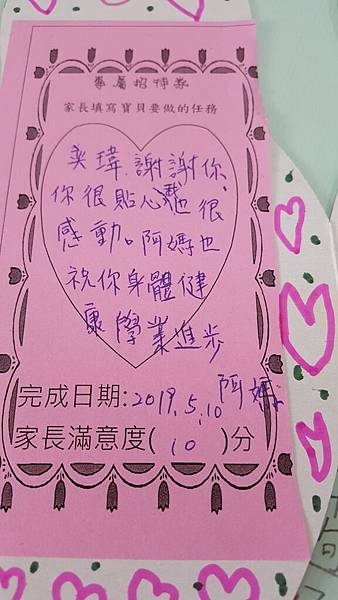 專屬招待券
家長填寫寶貝要做的任務
奕瑋謝謝你,
你很貼心,我也很
感動。阿媽也
祝你身體健
康學業進步
完成日期:2019.5.10 阿媽
家長滿意度(10)分